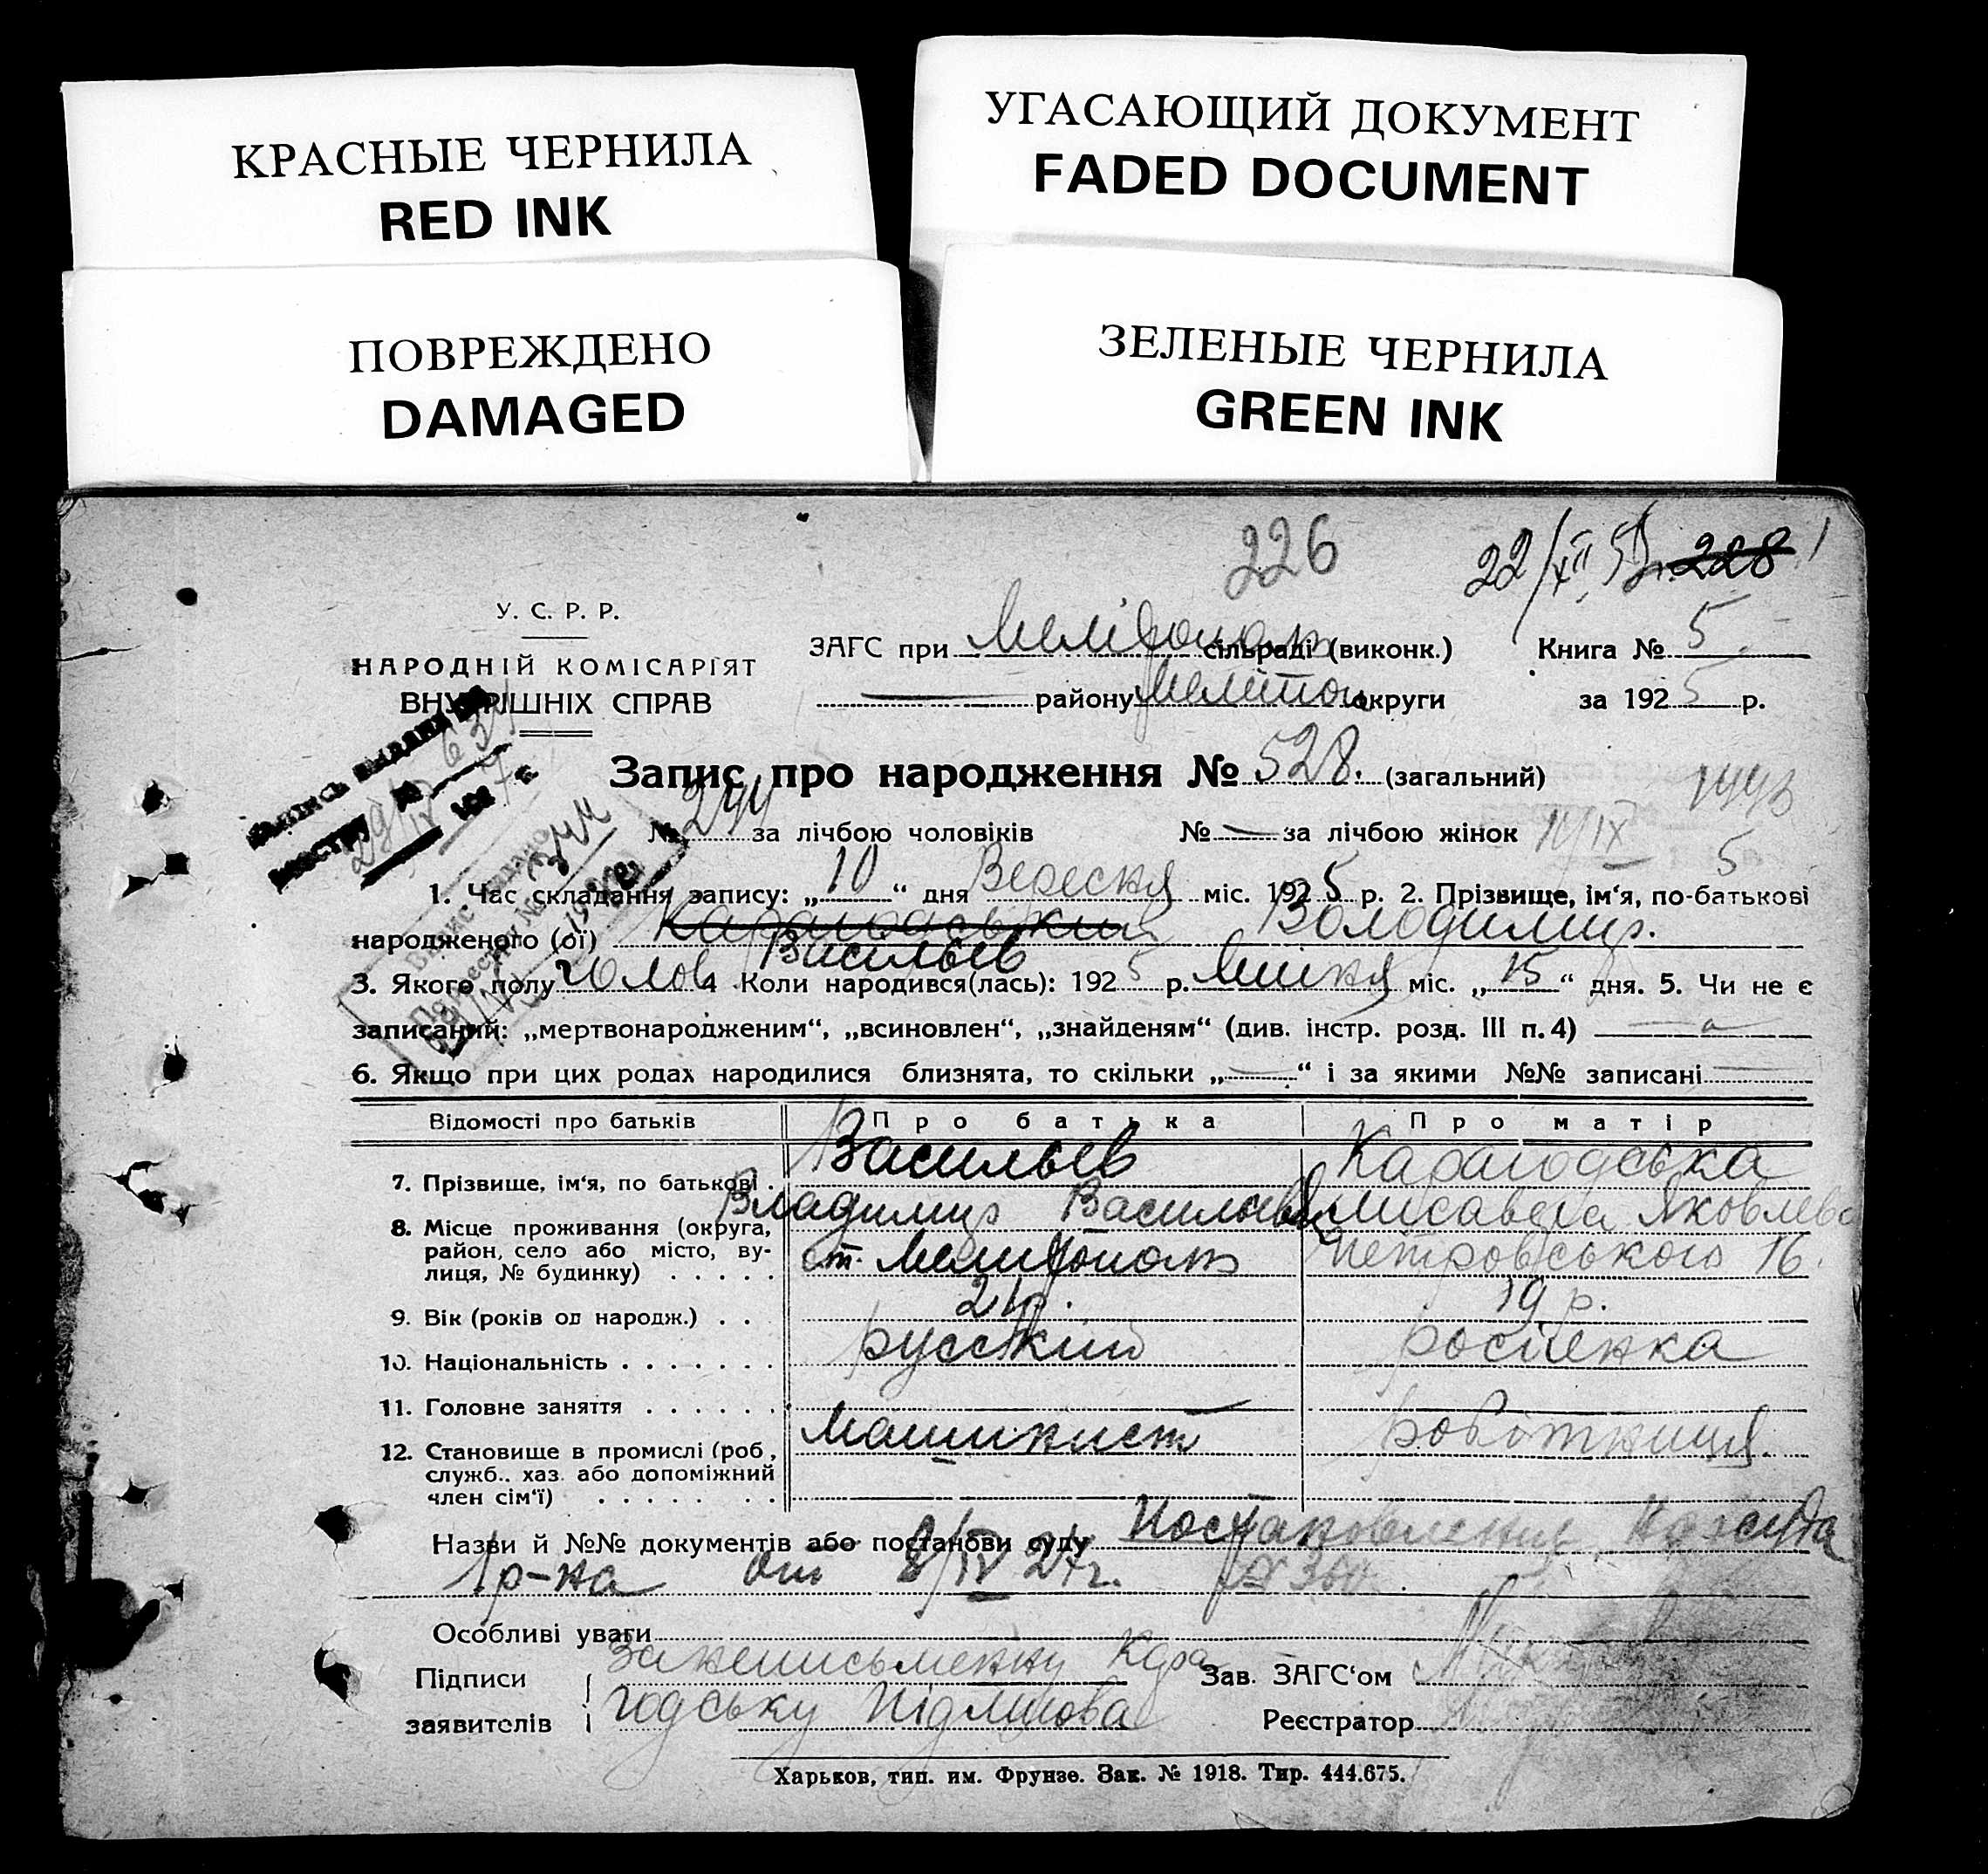 КРАСНЫЕ ЧЕРНИЛА
RED INK
УГАСАЮЩИЙ ДОКУМЕНТ
FADED DOCUMENT
ПОВРЕЖДЕНО
DAMAGED
ЗЕЛЕНЫЕ ЧЕРНИЛА
GREEN INK
226
22/XII 228
У. С. Р. Р.
НАРОДНІЙ КОМІСАРІЯТ
ВНУТРІШНІХ СПРАВ
ЗАГС при Меліτοполь сільраді (виконк.) Книга № 5
— району Мелітоп округи за 1925 р.
Запис про народження № 528. (загальний)
№ 244 за лічбою чоловіків № — за лічбою жінок 14/IX
1. Час складання запису: „10“ дня Вересня міс. 1925 р. 2. Прізвище, ім‘я, по-батькові
народженого (ої) Карагодський Володимир.
Васильев
3. Якого полу чолов 4 Коли народився(лась): 1925 р. Липня міс. „15“ дня. 5. Чи не є
записаний: „мертвонародженим“, „всиновлен“, „знайденям“ (див. інстр. розд. III п. 4) —
6. Якщо при цих родах народилися близнята, то скільки „—“ і за якими №№ записані —
Відомості про батьків Про батька Про матір
7. Прізвище, ім‘я, по батькові . Васильев Карагодська
Владимир Васильевич Лисавета Яковлевн
8. Місце проживання (округа, район, село або місто, ву-
лиця, № будинку) . . . . . ст. Мелитополь Петровського 16.
9. Вік (років од народж.) . . 21 р. 19 р.
10. Національність . . . . . . . русский росіенка
11. Головне заняття . . . . . .
12. Становище в промислі (роб, машинист роботниця.
служб.. хаз. або допоміжний
член сім‘ї) . . . . . . .
Назви й №№ документів або постанови суду Постановления Нарсуда
1 р-на от 8/IV 27 г. № 360
Особливі уваги
Підписи За неписьменну Кара Зав. ЗАГС‘ом
заявителів годську Підмінова Реєстратор
Харьков, тип. им. Фрунзе. Зак. № 1918. Тир. 444.675.